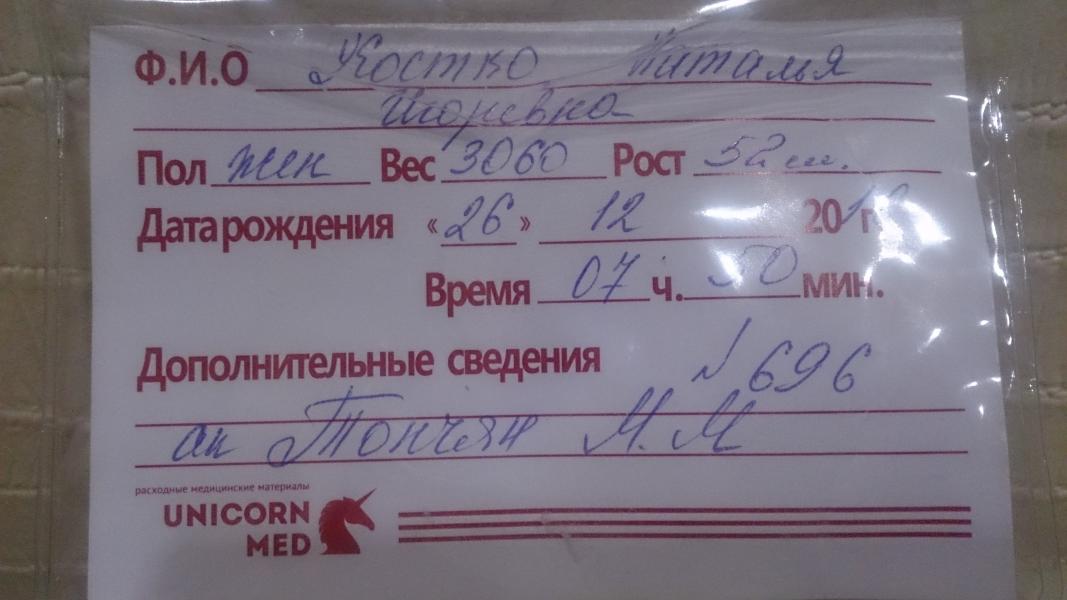 Ф.И.О Костко Наталья
Игоревна
Пол жен Вес 3060 Рост 52 см.
Дата рождения «26» 12 20 г
Время 07 ч. 50 мин.
Дополнительные сведения №696
ак Тончян М.М
расходные медицинские материалы
UNICORN
MED